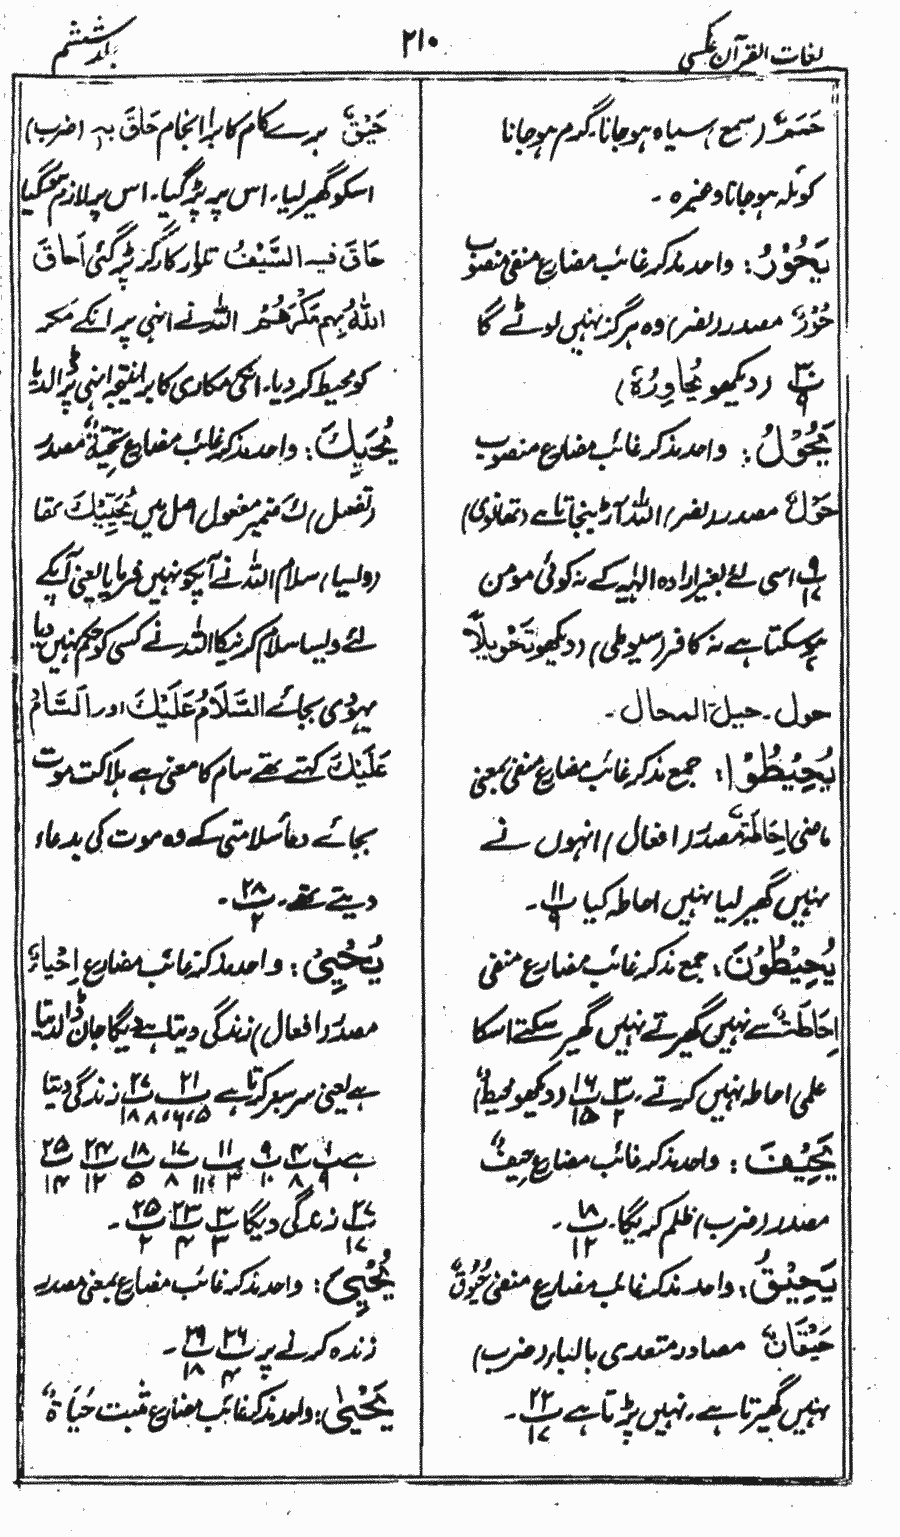 لغات القرآن عکسی
۲۱۰
جلد ششم
حَمَمٌ (سمع) سیاہ ہوجانا۔ گرم ہوجانا
کوئلہ ہوجانا وغیرہ۔
یَحُوْرَ: واحد مذکر غائب مضارع منفی منصوب
حُوْرٌ مصدر (نصر) وہ ہرگز نہیں لوٹے گا
پ۳۰/۹ (دیکھو تَحَاوُرَ)
یَحُوْلُ: واحد مذکر غائب مضارع منصوب
حَوْلٌ مصدر (نصر) اللہ آڑ بنجاتا ہے (تھانوی)
پ۹/۱۷ اسی لئے بغیر ارادہ الٰہیہ کے نہ کوئی مومن
ہوسکتا ہے نہ کافر (سیوطی) (دیکھو تَحْوِیْلًا)
حول۔ حیل۔ المحال۔
یُحِیْطُوْا: جمع مذکر غائب مضارع منفی بمعنی
ماضی اِحَاطَةٌ مصدر (افعال) انہوں نے
نہیں گھیر لیا نہیں احاطہ کیا پ۱۱/۹۔
یُحِیْطُوْنَ: جمع مذکر غائب مضارع منفی
اِحَاطَةٌ سے نہیں گھیرتے نہیں گھیر سکتے اسکا
علمی احاطہ نہیں کرتے۔ پ۳/۲ پ۱۶/۱۵ (دیکھو محیط)
یَحِیْفَ: واحد مذکر غائب مضارع حَیْفٌ
مصدر (ضرب) ظلم کریگا۔ پ۱۸/۱۲۔
یَحِیْقُ: واحد مذکر غائب مضارع منفی حُیُوْقٌ
حَیَقَانٌ مصادر متعدی بالباء (ضرب)
نہیں گھیرتا ہے۔ نہیں پڑتا ہے پ۲۲/۱۷۔
حَیْقٌ برے کام کا برا انجام حَاقَ بِہٖ (ضرب)
اسکو گھیر لیا۔ اس پر پڑ گیا۔ اس پر لازم ہوگیا
حَاقَ فیہ السَّیْفُ تلوار کارگر پڑ گئی اَحَاقَ
اللہُ بِہِم مَکْرَھُمْ اللہ نے انہی پر انکے مکر
کو محیط کر دیا۔ انکی مکاری کا برا نتیجہ انہی پر ڈالدیا
یُحَیِّکَ: واحد مذکر غائب مضارع تَحِیَّةٌ مصدر
(تفعیل) کَ ضمیر مفعول اصل میں یُحَیِّیْکَ تھا
(ویسا) سلام اللہ نے آپکو نہیں فرمایا یعنی آپکے
لئے ویسا سلام کرنیکا اللہ نے کسی کو حکم نہیں دیا
یہودی بجائے السَّلَامُ عَلَیْکَ اور السَّامُ
عَلَیْکَ کہتے تھے سام کا معنی ہے ہلاکت موت
بجائے دعا سلامتی کے وہ موت کی بد دعاء
دیتے تھے۔ پ۲۸/۲۔
یُحْیِیْ: واحد مذکر غائب مضارع اِحْیَاءٌ
مصدر (افعال) زندگی دیتا ہے دیگا جان ڈالدیتا
ہے یعنی سرسبز کرتا ہے پ۲۱/۵،۶،۸ پ۲۷/۱۸ زندگی دیتا
ہے پ۱/۹ پ۴/۸ پ۹/۱۰ پ۱۱/۳،۱۱ پ۱۷/۸ پ۱۸/۵ پ۲۴/۱۲ پ۲۵/۱۴
پ۲۷/۱۷ زندگی دیگا پ۳/۳ پ۲۳/۴ پ۲۵/۲۔
یُحْیِیَ: واحد مذکر غائب مضارع بمعنی مصدر
زندہ کرنے پر پ۲۶/۴ پ۲۹/۱۸۔
یَحْیٰی: واحد مذکر غائب مضارع مثبت حَیَاةٌ